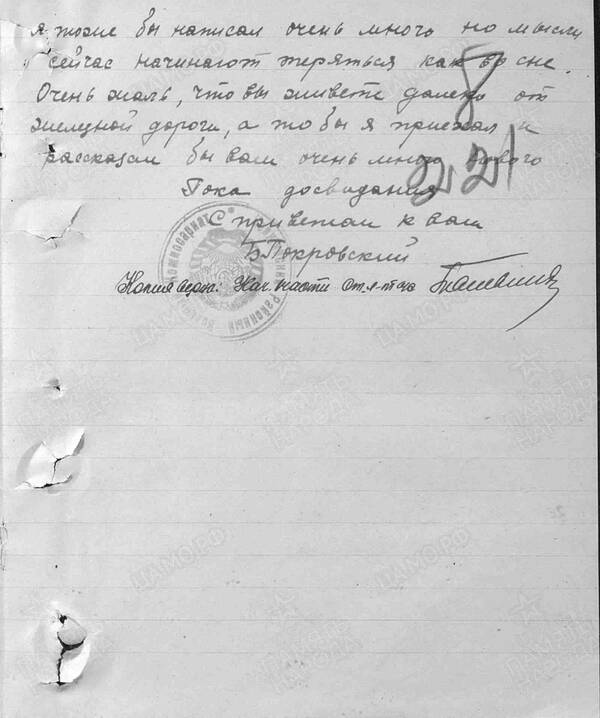 я тоже бы написал очень много но мысли
сейчас начинают теряться как во сне.
Очень жаль, что вы живете далеко от
железной дороги, а то бы я приехал и
рассказал бы вам очень много нового
Пока досвидания
С приветам к вам
Б Покровский
Копия верна: Нач. части ст. л-т а/с
8
221
ЦАМО.РФ
ПАМЯТЬ НАРОДА